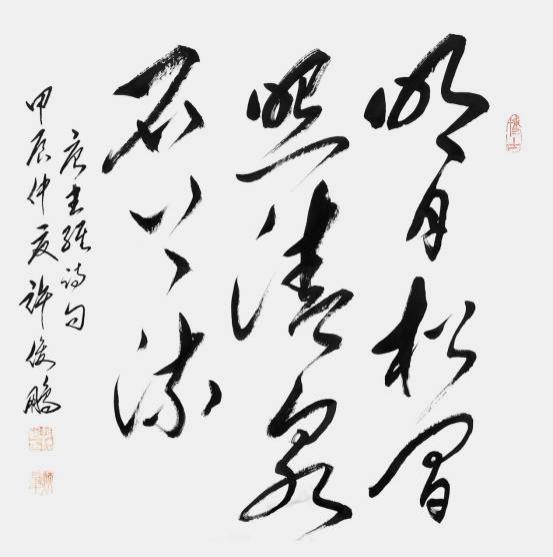 明月松間
照清泉
石上流
唐王維詩句
甲辰仲夏許俊鵬